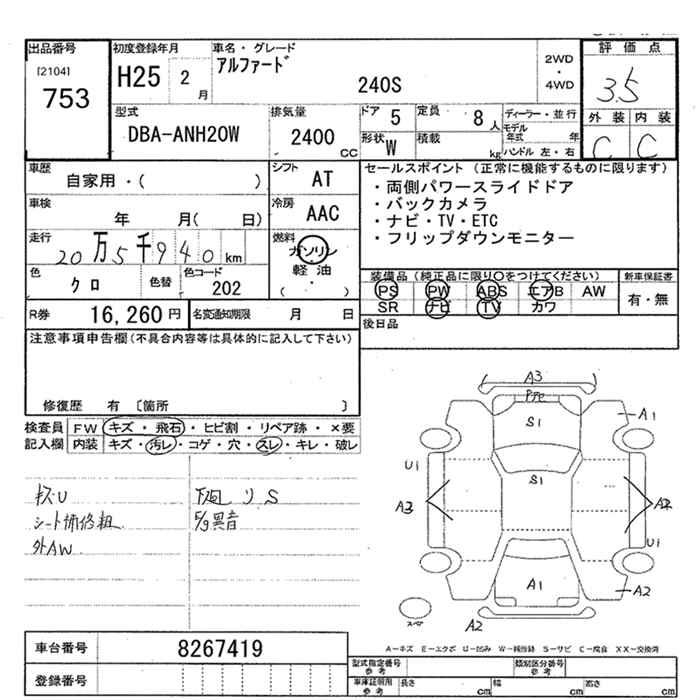 出品番号
[2104]
753
初度登録年月
H25 2 月
車名・グレード
アルファード
240S
2WD
・
4WD
評価点
3.5
外装 内装
C C
型式
DBA-ANH20W
排気量
2400 CC
ドア 5
定員 8 人
形状 W
積載 kg
ディーラー・並行
モデル年式 年
ハンドル 左・右
車歴
自家用・( )
シフト AT
車検 年 月( 日)
冷房 AAC
走行
20万5千940km
燃料
ガソリン
軽油
( ・ )
色 クロ
色替
色コード
202
R券 16,260 円
名変通知期限 月 日
セールスポイント(正常に機能するものに限ります)
・両側パワースライドドア
・バックカメラ
・ナビ・TV・ETC
・フリップダウンモニター
装備品(純正品に限り○をつけてください)
PS PW ABS エアB AW
SR ナビ TV カワ
新車保証書
有・無
後日品
注意事項申告欄(不具合内容等は具体的に記入して下さい)
修復歴 有 〔箇所 〕
検査員
記入欄
FW キズ・飛石・ヒビ割・リペア跡・×要
内装 キズ・汚レ・コゲ・穴・スレ・キレ・破レ
キズU
シート補修粗
外AW
下回リS
F/g異音
A3
S1
A1
U1
S1
A3
A2
U1
A1
A2
A2
スペア
A-キズ E-エクボ U-凹み W-補修跡 S-サビ C-腐食 XX-交換済
車台番号 8267419
登録番号
型式指定番号
参考
類別区分番号
参考
車庫証明用
参考
長さ cm 幅 cm 高さ cm